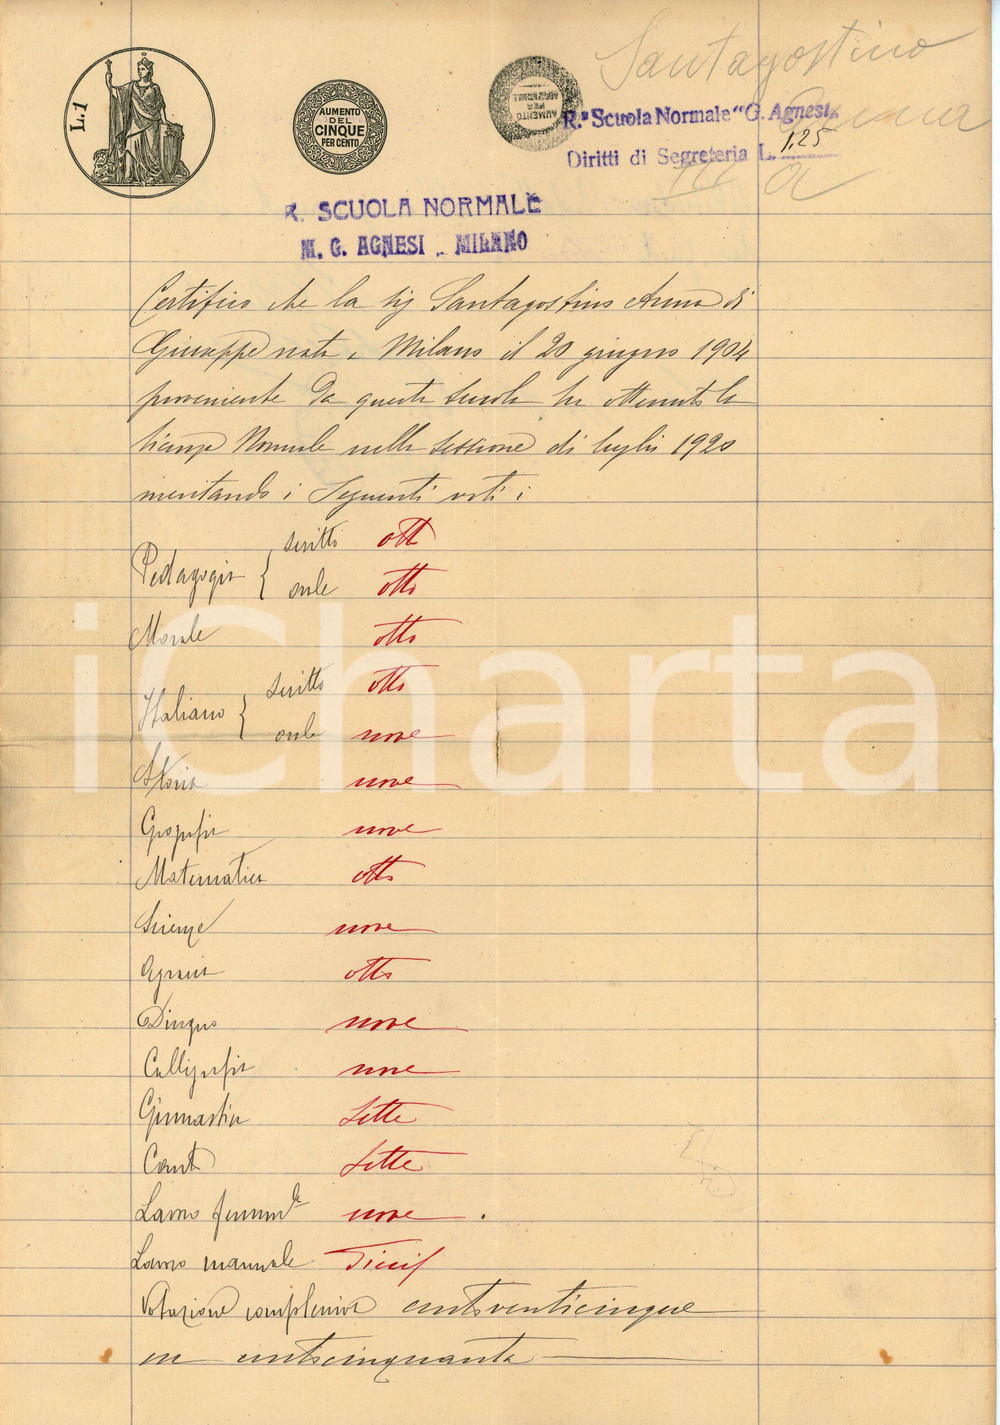 Santagostino
Anna
III a
L. 1
AUMENTO
DEL
CINQUE
PER CENTO
AUMENTO
PER
R.ª Scuola Normale "G. Agnesi"
Diritti di Segreteria L. 1,25
R. SCUOLA NORMALE
M. G. AGNESI - MILANO
Certifico che la sig Santagostino Anna di
Giuseppe nata a Milano il 20 giugno 1904
proveniente da questa scuola ha ottenuto la
licenza Normale nella sessione di luglio 1920
meritando i seguenti voti:
Pedagogia { scritto otto
orale otto
Morale otto
Italiano { scritto otto
orale nove
Storia nove
Geografia nove
Matematica otto
Scienze nove
Agraria otto
Disegno nove
Calligrafia nove
Ginnastica Sette
Canto Sette
Lavoro femm.le nove
Lavoro manuale Dieci
Votazione complessiva centoventicinque
su centocinquanta
iCharta